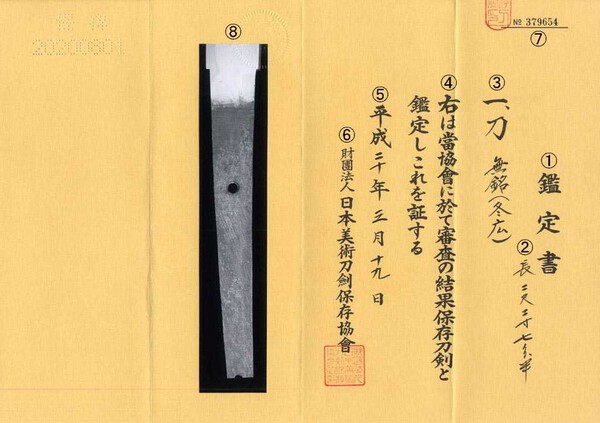 № 379654
⑦
① 鑑定書
② 長二尺二寸七分半
③ 一、刀 無銘(冬広)
④ 右は當協會に於て審査の結果保存刀剣と
鑑定しこれを証する
⑤ 平成二十年三月十九日
⑥ 財團法人 日本美術刀劍保存協會
⑧
20200601